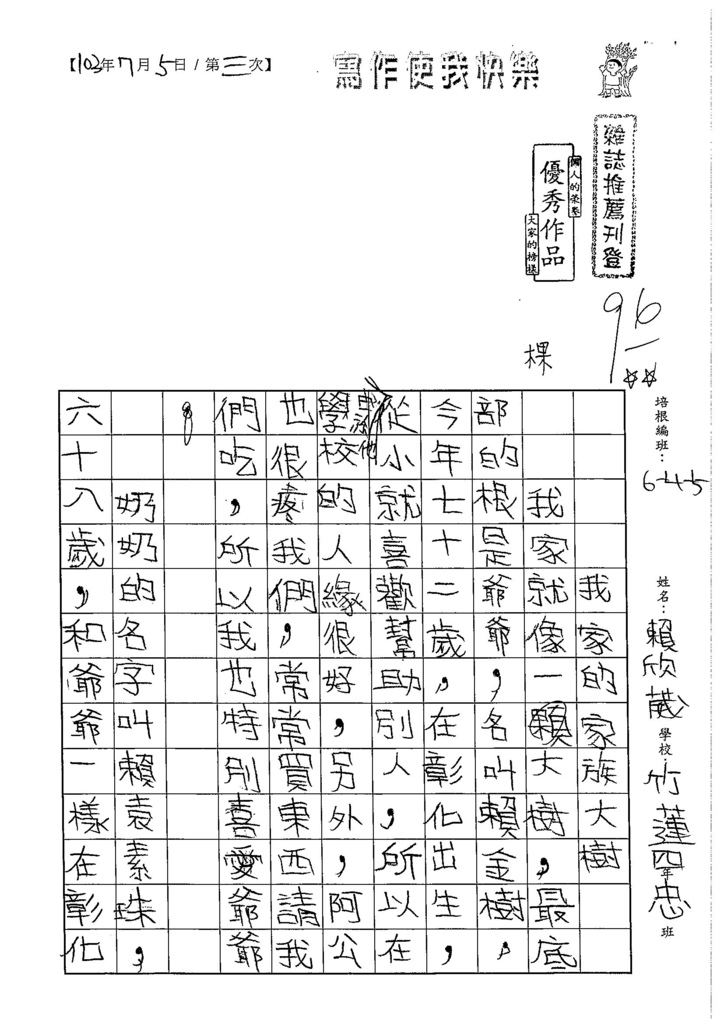 【102年7月5日/第三次】
寫作使我快樂
雜誌推薦刊登
個人的榮譽
優秀作品
大家的榜樣
96
棵
培根編班：6245
姓名：賴欣葳
學校：竹蓮四年忠班
我家的家族大樹
我家就像一顆大樹，最底
部的根是爺爺，名叫賴金樹，
今年七十二歲，在彰化出生，
從小就喜歡幫助別人，所以在
學校的人緣很好，另外，阿公
也很疼我們，常常買東西請我
們吃，所以我也特別喜愛爺爺
。
奶奶的名字叫賴袁素珠，
六十八歲，和爺爺一樣在彰化